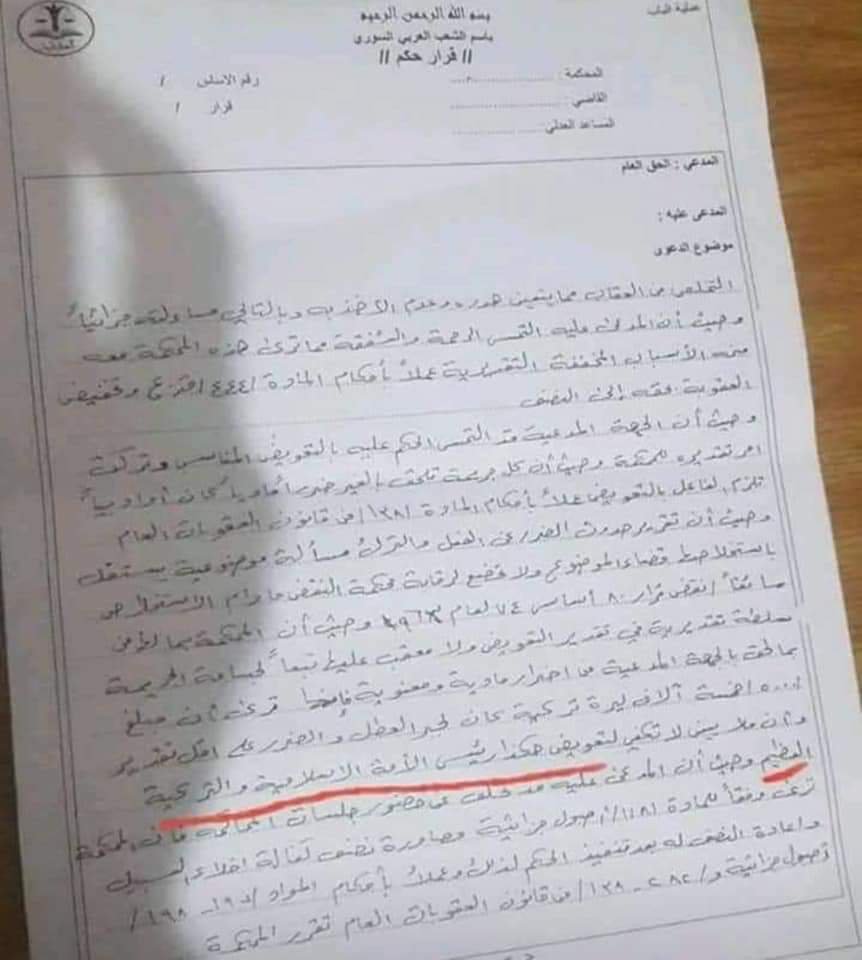 عملية الباب
العدالة
بسم الله الرحمن الرحيم
باسم الشعب العربي السوري
// قرار حكم //
المحكمة : ........................
رقم الاساس /
القاضي : ........................
قرار /
المساعد العدلي : ........................
المدعي : الحق العام
المدعى عليه :
موضوع الدعوى
التملص من العقاب مما يتعين هدره وعدم الأخذ به وبالتالي مساءلته جزائياً
وحيث أن المدعى عليه التمس الرحمة والشفقة مما ترى هذه المحكمة معه
منحه الأسباب المخففة التقديرية عملاً بأحكام المادة /٢٤٤/ ق.ع وتخفيض
العقوبة بحقه إلى النصف
وحيث أن الجهة المدعية قد التمست الحكم عليه بالتعويض المناسب وتركت
امر تقديره للمحكمة وحيث أن كل جريمة تلحق بالغير ضرراً مادياً كان أو ادبياً
تلزم الفاعل بالتعويض عملاً بأحكام المادة /١٣٨/ من قانون العقوبات العام
وحيث أن تقرير حدوث الضرر عن الفعل والترك مسألة موضوعية يستقل
باستخلاصها قضاء الموضوع ولا تخضع لرقابة محكمة النقض ما دام الاستخلاص
سائغاً /نقض قرار ٨٠ أساس ٧٤ لعام وحيث أن المحكمة بما لها من
سلطة تقديرية في تقدير التعويض ولا معقب عليها تبعاً لجسامة الجريمة
بما لحق بالجهة المدعية من اضرار مادية ومعنوية فإنها ترى أن مبلغ
/٥٠٠٠/ خمسة آلاف ليرة تركية كان لجبر العطل والضرر على اقل تقدير
وأن ملايين لا تكفي لتعويض هكذا رئيس الأمة الاسلامية والتركية
العظيم وحيث أن المدعى عليه قد تخلف عن حضور جلسات المحاكمة فإن المحكمة
ترى وفقاً للمادة اصول جزائية مصادرة نصف كفالة اخلاء السبيل
واعادة النصف له بعد تنفيذ الحكم لذلك وعملاً بأحكام المواد
اصول جزائية و من قانون العقوبات العام تقرر المحكمة